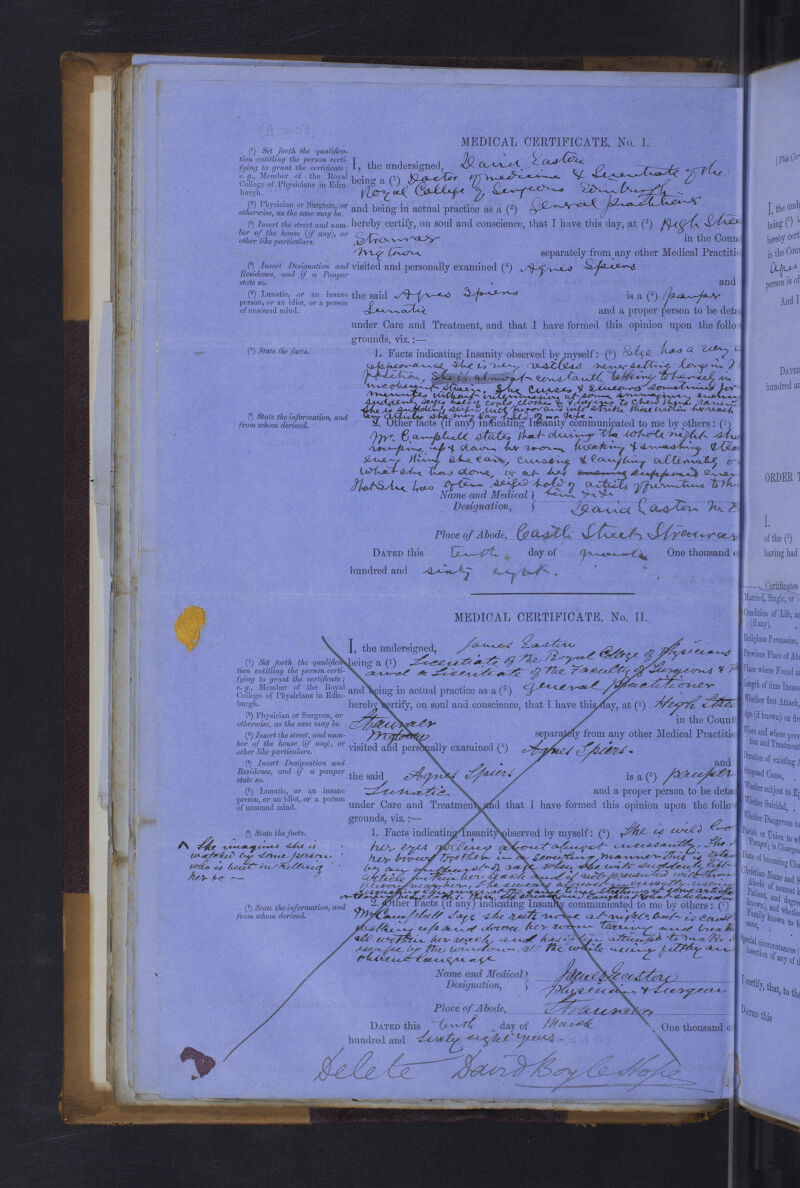 MEDICAL CERTIFICATE, No. I.
(¹) Set forth the qualifica-
tion entitling the person certi-
fying to grant the certificate;
e.g., Member of the Royal
College of Physicians in Edin-
burgh.
(²) Physician or Surgeon, or
otherwise, as the case may be.
(³) Insert the street and num-
ber of the house (if any), or
other like particulars.
(⁴) Insert Designation and
Residence, and if a Pauper
state so.
(⁵) Lunatic, or an insane
person, or an idiot, or a person
of unsound mind.
(⁶) State the facts.
(⁷) State the information, and
from whom derived.
I, the undersigned, David Easton
being a (¹) Doctor of medicine & Licentiate of the
Royal College of Surgeons Edinburgh
and being in actual practice as a (²) General practitioner
hereby certify, on soul and conscience, that I have this day, at (³) High Stree
Stranraer in the Coun
Wigtown separately from any other Medical Practitio
visited and personally examined (⁴) Agnes Spiers
and
the said Agnes Spiers is a (⁵) pauper
Lunatic and a proper person to be deta
under Care and Treatment, and that I have formed this opinion upon the follo
grounds, viz.:—
1. Facts indicating Insanity observed by myself: (⁶) She has a very
appearance She is very restless never sitting long in
position, She is almost constantly talking to herself in
incoherent strain. She curses & swears sometimes for
minutes without intermission at some imaginary enemy
suddenly seizes hold of coals, cloths &
She is suddenly seized with furor and will strike those within her reach
2. Other facts (if any) indicating Insanity communicated to me by others: (⁷)
Mr. Campbell states that during the whole night she
up & down her room breaking & smashing
every thing she can, cursing & laughing alternately
what she has done, or at her supposed
That she has often seized hold of articles of furniture to
Name and Medical
Designation, David Easton M.D
Place of Abode, Castle Street Stranraer
DATED this tenth day of March One thousand
hundred and sixty eight.
MEDICAL CERTIFICATE, No. II.
(¹) Set forth the qualifica-
tion entitling the person certi-
fying to grant the certificate;
e.g., Member of the Royal
College of Physicians in Edin-
burgh.
(²) Physician or Surgeon, or
otherwise, as the case may be.
(³) Insert the street, and num-
ber of the house (if any), or
other like particulars.
(⁴) Insert Designation and
Residence, and if a pauper
state so.
(⁵) Lunatic, or an insane
person, or an idiot, or a person
of unsound mind.
(⁶) State the facts.
^ She imagines she is
watched by some person
who is bent on killing
her &c —
(⁷) State the information, and
from whom derived.
I, the undersigned, James Easton
being a (¹) Licentiate of the Royal College of Physicians
and a Licentiate of the Faculty of Surgeons &
and being in actual practice as a (²) general practitioner
hereby certify, on soul and conscience, that I have this day, at (³) High Stree
Stranraer in the Count
Wigtown separately from any other Medical Practitio
visited and personally examined (⁴) Agnes Spiers.
and
the said Agnes Spiers is a (⁵) pauper
Lunatic and a proper person to be deta
under Care and Treatment, and that I have formed this opinion upon the follo
grounds, viz.:—
1. Facts indicating Insanity observed by myself: (⁶) She is wild loo
her eyes rolling about almost incessantly. She
her brows together in a scowling manner This is often
by an outbreak of rage when she will suddenly
article within her reach and if not prevented will throw
2. Other Facts (if any) indicating Insanity communicated to me by others: (⁷)
Mrs Campbell Says she rests none at night but is
walking up and down her room tearing and break
all within her reach and has often attempted to make
escape by the window, all the while using filthy and
obscene language
Name and Medical
Designation, James Easton
Physician & Surgeon
Place of Abode, Stranraer
DATED this tenth day of March One thousand
hundred and Sixty eight years.
Delete David Boyle Hope
(This Cer
I, the und
being (¹)
hereby cert
in the Cou
Agnes
person is of
And I
DATED
hundred an
ORDER T
I,
of the (²)
having had
Certificates
Married, Single, or
Condition of Life, a
(if any),
Religious Persuasion,
Previous Place of Ab
Place where Found a
Length of time Insan
Whether first Attack,
Age (if known) on fir
When and where prev
tion and Treatment
Duration of existing A
Supposed Cause,
Whether subject to Ep
Whether Suicidal,
Whether Dangerous to
Parish or Union to wh
Pauper) is Charge
Date of becoming Cha
Christian Name and S
Abode of nearest k
Patient, and degree
known), and whethe
Family known to b
sane,
Special circumstances
insertion of any of t
I certify, that, to the
DATED this